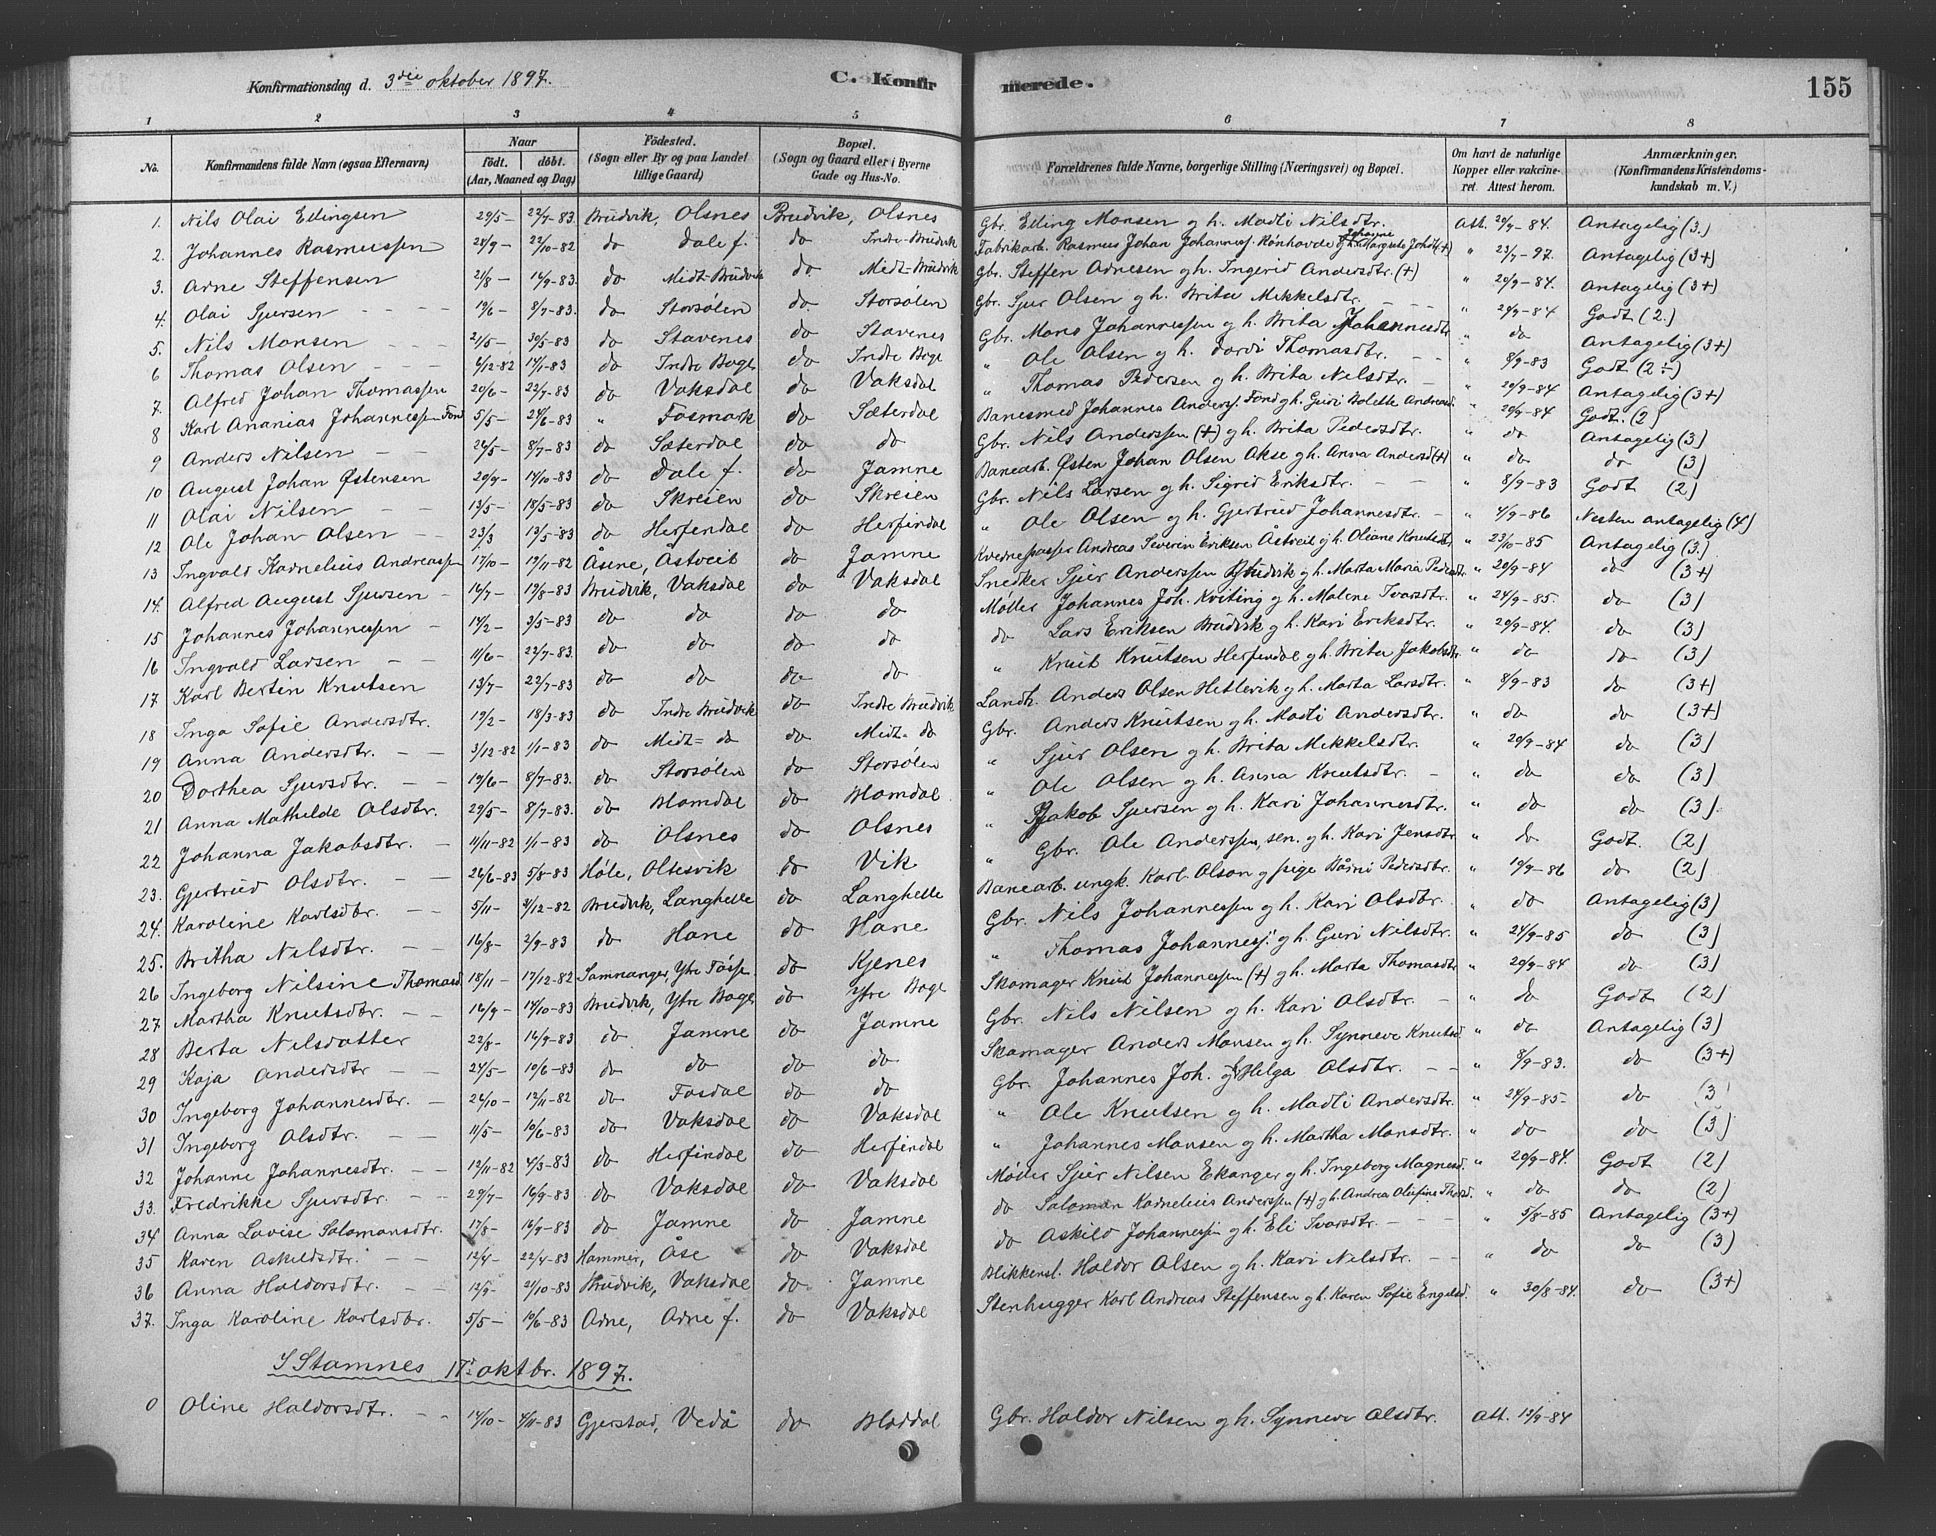 Konfirmationsdag d. 3die oktober 1897.
C. Konfirmerede.
155
1 2 3 4 5 6 7 8
No. Konfirmandens fulde Navn (ogsaa Efternavn) Naar født. døbt. (Aar, Maaned og Dag) Fødested. (Sogn eller By og paa Landet tillige Gaard) Bopæl. (Sogn og Gaard eller i Byerne Gade og Hus-No. Forældrenes fulde Navne, borgerlige Stilling (Næringsvei) og Bopæl. Om havt de naturlige Kopper eller vaccineret. Attest herom. Anmærkninger. (Konfirmandens Kristendomskundskab m. V.)
1. Nils Olai Edingsen 29/5- 22/7-83 Brudvik, Olsnes Brudvik, Olsnes Gbr. Eding Monsen og h. Madli Nilsdtr. Att. 20/9-84. Antagelig (3.)
2. Johannes Rasmussen 28/9- 22/10-82 do Dale f. do Indre-Brudvik Fabrikarb. Rasmus Johan Johanness. Rønhovde og h. Johanne Margrete Johsd(+) " 23/7-97. Antagelig (3+)
3. Arne Steffensen 21/8- 16/9-83. do Midt=Brudvik do. Midt=Brudvik Gbr. Steffen Arnesen og h. Ingerid Andersdtr. (+) " 20/9-84. Antagelig (3+)
4. Olai Sjursen 19/6- 8/7-83. do Storsølen do. Storsølen Gbr. Sjur Olsen og h. Brita Mikkelsdtr. " 20/9-84 Godt (2.)
5. Nils Monsen 21/5- 30/5-83 do Stavenes do Stavenes Gbr. Mons Johannessen og h. Brita Johannesdtr. " do Antagelig (3+)
6 Thomas Olsen 6/12-82 14/1-83 do Indre Boge do Indre Boge " Ole Olsen og h. Dordi Thomasdtr. " 8/9-83 Godt (2÷)
7. Alfred Johan Thomassen 20/6- 22/7-83 do Vaksdal do Vaksdal " Thomas Pedersen og h. Brita Nilsdtr. " 20/9-84 Antagelig (3+)
8 Karl Ananias Johannessen Fond 5/5- 24/6-83 " Fosmark do Sæterdal Banesmed Johannes Anderss. Fond og h. Guri Bolette Andreasd. " 20/9-84 Godt. (2)
9 Anders Nilsen 26/5- 8/7-83 do Sæterdal do do Gbr. Nils Anderssen (+) og h. Brita Pedersdtr. " do Antagelig (3)
10 August Johan Østensen 20/9- 14/10-83 do Dale f. do Jamne Banearb. Østen Johan Olsen Akse og h. Anna Andersd(+) " do do (3)
11 Olai Nilsen 13/5- 18/5-83 do Skreien do Skreien Gbr. Nils Larsen og h. Sigrid Eriksdtr. " 8/9-83 Godt (2)
12 Ole Johan Olsen 23/3 13/5-83 do Herfendal do Herfindal " Ole Olsen og h. Gjertrud Johannesdtr. " 4/9-86 Nesten antagelig (4)
13 Ingvald Kornelius Andreassen 17/10- 19/11-82 Åsene, Åstveit do Jamne Kvernepasser Andreas Severin Eriksen Åstveit og h. Oliane Knutsdtr " 23/10-85 Antagelig (3.)
14. Alfred August Sjursen 16/7- 19/8-83 Brudvik, Vaksdal do Vaksdal Snedker Sjur Anderssen Brudvik og h. Marta Maria Pedersdtr " 20/9-84 do (3+)
15 Johannes Johannessen 14/2- 3/5-83 do do do do Møller Johannes Joh. Kviting og h. Malene Ivarsdtr. " 24/9-85. do (3)
16 Ingvald Larsen 11/6- 22/7-83. do do do do do Lars Eriksen Brudvik og h. Kari Eriksdtr. " 20/9-84. do (3)
17 Karl Bertin Knutsen 13/7- 22/7-83 do do do do " Knut Knutsen Herfindal og h. Brita Jakobsdtr " do do (3)
18 Inga Sofie Andersdtr. 19/2- 18/3-83 do Indre Brudvik do Indre Brudvik Landh. Anders Olsen Hetlevik og h. Marta Larsdtr. " 8/9-83 do (3+)
19 Anna Andersdtr. 3/12-82 1/1-83 do Midt= do do Midt= do Gbr. Anders Knutsen og h. Madli Andersdtr. " do do (3+)
20 Dorthea Sjursdtr. 19/6- 8/7-83. do Storsølen do Storsølen " Sjur Olsen og h. Brita Mikkelsdtr. " 20/9-84 do (3)
21 Anna Mathilde Olsdtr. 29/5- 8/7-83. do Blomdal do Blomdal " Ole Olsen og h. Anna Knutsdtr. " do do (3)
22 Johanna Jakobsdtr. 11/11-82 1/1-83 do Olsnes do Olsnes " Jakob Sjursen og h. Kari Johannesdtr. " do do (3)
23. Gjertrud Olsdtr. 26/6-83 5/8-83 Høle, Oltesvik do Vik " Gbr. Ole Anderssen, sen. og h. Kari Jensdtr. " do Godt. (2)
24. Karoline Karlsdtr. 5/11- 3/12-82 Brudvik, Langhelle do Langhelle Banearb. ungk. Karl Olson og pige Bårni Pedersdtr. " 19/9-86 do (2)
25. Britha Nilsdtr. 16/8- 2/9-83 do Hane do Hane Gbr. Nils Johannessen og h. Kari Olsdtr. " do Antagelig (3)
26 Ingeborg Nilsine Thomasd 18/11- 17/12-82 Samnanger, Ytre Tøsse do Kjenes " Thomas Johanness. og h. Guri Nilsdtr. " 24/9-85 do (3)
27. Martha Knutsdtr. 16/9- 14/10-83 Brudvik, Ytre Boge do Ytre Boge Skomager Knut Johannessen (+) og h. Marta Thomasdtr " 20/9-84 do (3)
28 Berta Nilsdatter 22/8- 16/9-83 do Jamne do Jamne Gbr. Nils Nilsen og h. Kari Olsdtr. " do Godt (2)
29 Kaja Andersdtr 24/5- 10/6-83 do do do do Skomager Anders Monsen og h. Synneve Knutsd. " do Antagelig (3)
30 Ingeborg Johannesdtr. 26/10- 12/11-82 do Fosdal do do Gbr. Johannes Joh. og Helga Olsdtr. " 8/9-83. do (3+)
31 Ingeborg Olsdtr. 11/5- 10/6-83 do Vaksdal do Vaksdal " Ole Knutsen og h. Madli Andersdtr. " 24/9-85- do (3
32 Johanne Johannesdtr. 12/11-82 4/3-83 do Herfindal do Herfindal " Johannes Monsen og h. Martha Monsdtr. " do do (3)
33. Fredrikke Sjursdtr. 29/7- 16/9-83 do Vaksdal do Vaksdal Møller Sjur Nilsen Ekanger og h. Ingeborg Magnesd. " 20/9-84. Godt (2)
34 Anna Lovise Salomonsdtr. 17/8- 16/9-83 do Jamne do Jamne do Salomon Kornelius Anderssen (+) og h. Andrea Olufine Thorsd. " do do (2)
35 Karen Askildsdtr. 12/4- 22/4-83 Hammer, Åse do Vaksdal do Askild Johannessen og h. Eli Ivarsdtr. " 5/8-85 Antagelig (3+)
36 Anna Haldorsdtr. 12/9- 21/10-83 Brudvik, Vaksdal do Jamne Blikkensl. Haldor Olsen og h. Kari Nilsdtr. " do do (3)
37. Inga Karoline Karlsdtr. 5/5- 10/6-83 Arne, Arne f. do Vaksdal Stenhugger Karl Andreas Steffensen og h. Karen Sofie Engelsd. " 30/8-84. do (3+)
I Stamnes 17. oktbr. 1897.
0 Oline Haldorsdtr. 14/10- 4/11-83 Gjerstad, Vedå do Bleddal Gbr. Haldor Nilsen og h. Synneve Olsdtr. Att. 13/9-84